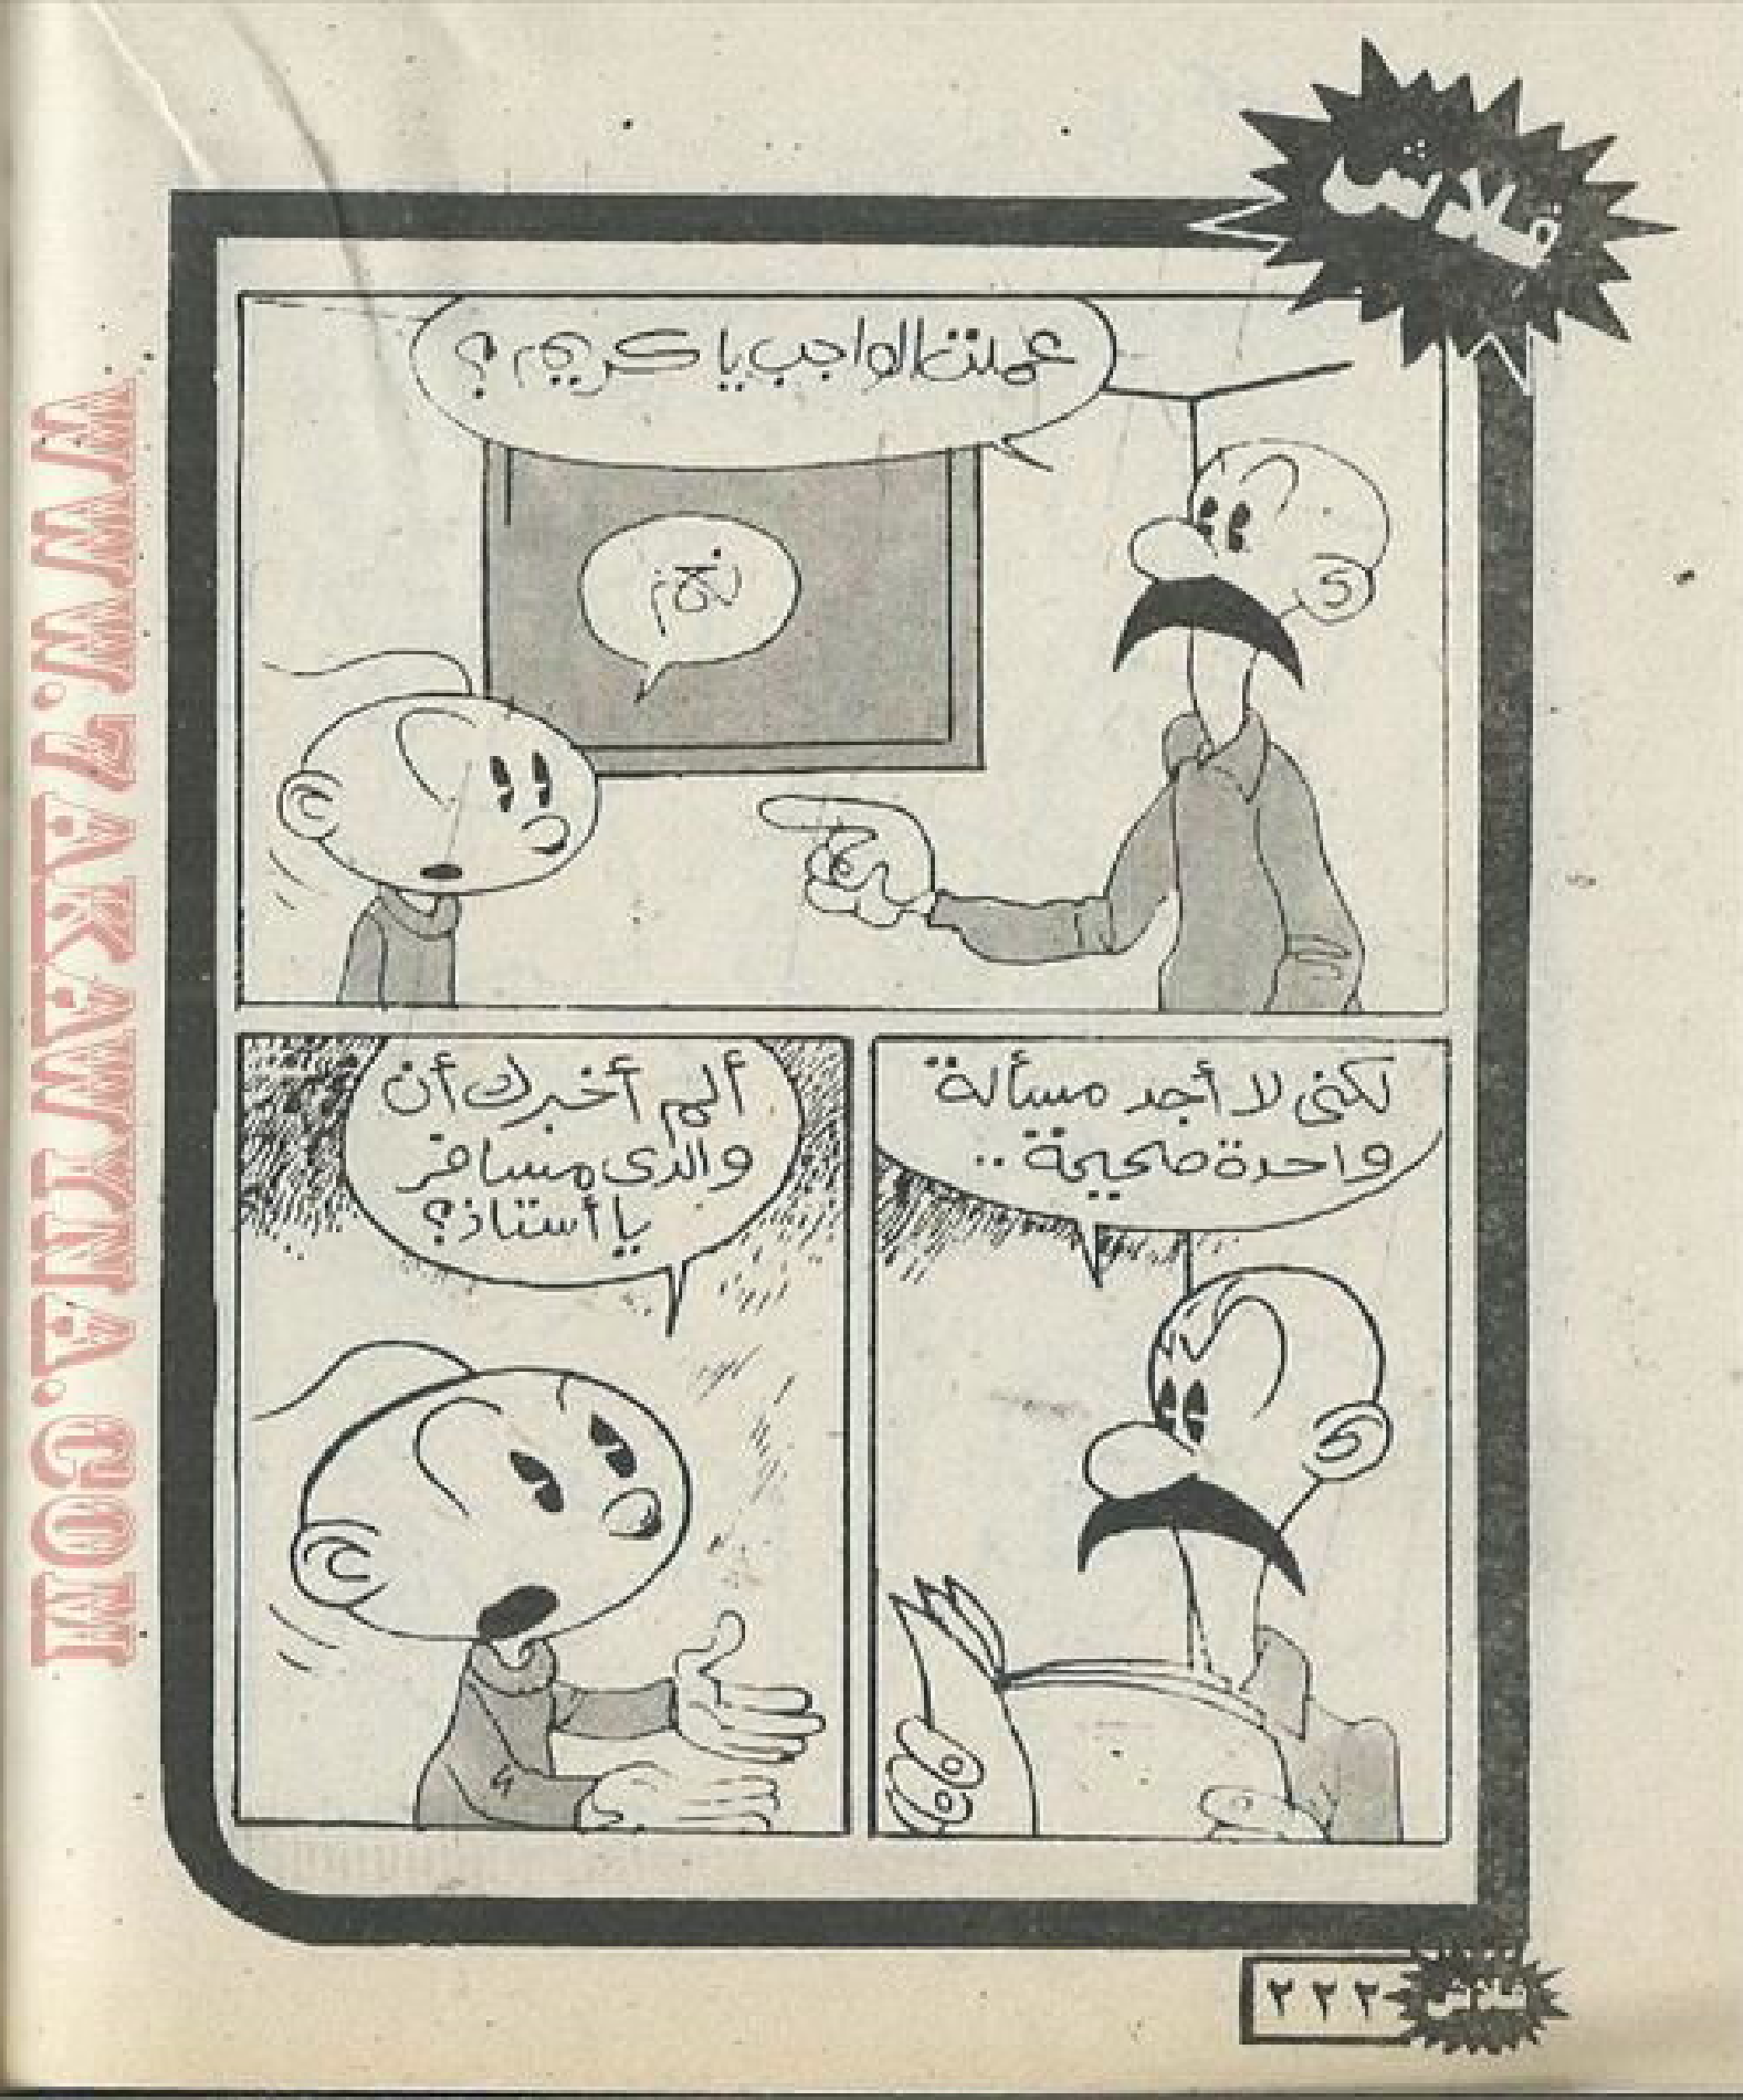 فلاش
عملت الواجب يا كريم؟
نعم
لكنى لا أجد مسألة
واحدة صحيحة..
ألم أخبرك أن
والدى مسافر
يا أستاذ؟
٢٢٢
فلاش
WWW.7AKAWITNA.COM